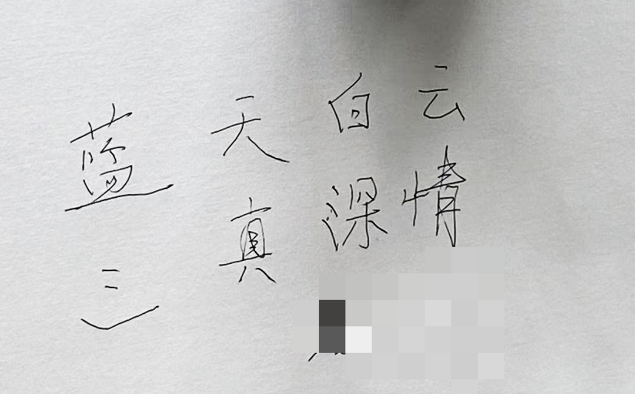 蓝天白云
真深情
三